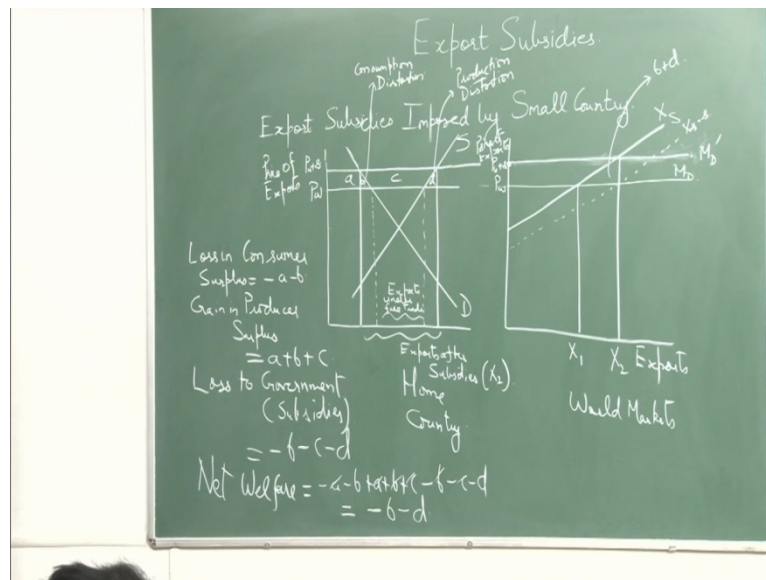 Export Subsidies.
Consumption
Distortion
Production
Distortion
b+d.
Export Subsidies Imposed by Small Country.
Price of
Exports
Pw+s
Pw
a b c d
S
D
Pw+s
Pw
X S
MD'
MD
Exports
under
Exports after
Subsidies (X2)
Home
Country
X1 X2 Exports
World Markets
Loss in Consumer
Surplus = -a-b
Gain in Producer
Surplus
= a+b+c
Loss to Government
(Subsidies)
= -b-c-d
Net Welfare = -a-b+a+b+c-b-c-d
= -b-d